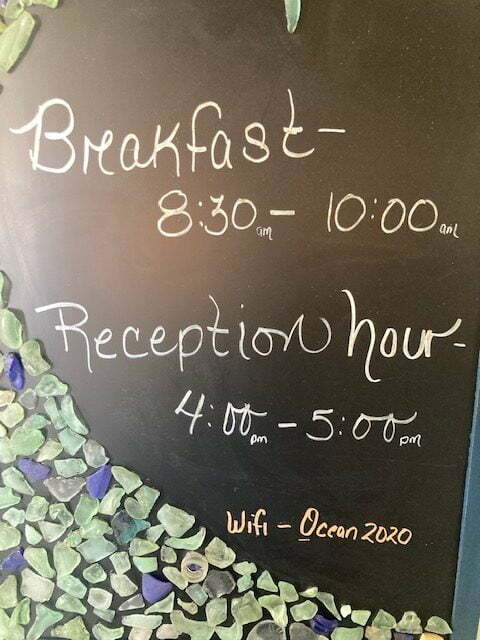 Breakfast-
8:30am - 10:00am
Reception hour-
4:00pm - 5:00pm
Wifi - Ocean2020